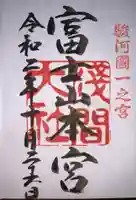 駿河國一之宮
富士山本宮
淺間
大社
令和二年十月二十六日